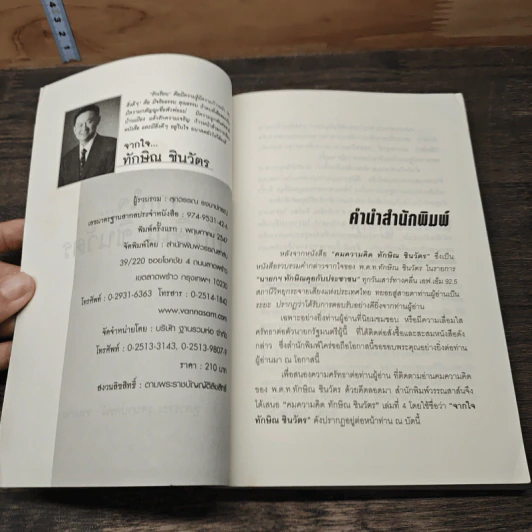 "รักเรียน" คือมีความรู้มีความก้าวหน้า
จากใจ...
ทักษิณ ชินวัตร
ผู้รวบรวม : สุดวรรณ
เลขมาตรฐานสากลประจำหนังสือ : 974-9531-42-
พิมพ์ครั้งแรก : พฤษภาคม 2547
จัดพิมพ์โดย : สำนักพิมพ์วรรณสาส์น
39/220 ซอยโชคชัย 4 ถนนลาดพร้าว
เขตลาดพร้าว กรุงเทพฯ 10230
โทรศัพท์ : 0-2931-6363 โทรสาร : 0-2514-1840
www.vannasarn.com
จัดจำหน่ายโดย : บริษัท ฐานรวมห่อ จำกัด
โทรศัพท์ : 0-2513-3143, 0-2513-9807-8
ราคา : 210 บาท
สงวนลิขสิทธิ์ : ตามพระราชบัญญัติลิขสิทธิ์
คำนำสำนักพิมพ์
หลังจากหนังสือ "คมความคิด ทักษิณ ชินวัตร" ซึ่งเป็น
หนังสือรวบรวมคำกล่าวจากใจของ พ.ต.ท.ทักษิณ ชินวัตร ในรายการ
"นายกฯ ทักษิณคุยกับประชาชน" ทุกวันเสาร์ทางคลื่น เอฟ.เอ็ม 92.5
สถานีวิทยุกระจายเสียงแห่งประเทศไทย ทยอยสู่สายตาท่านผู้อ่านเป็น
ระยะ ปรากฏว่าได้รับการตอบรับอย่างดียิ่งจากท่านผู้อ่าน
เฉพาะอย่างยิ่งท่านผู้อ่านที่นิยมชมชอบ หรือมีความเลื่อมใส
ศรัทธาต่อตัวนายกรัฐมนตรีผู้นี้ ที่ได้ติดต่อสั่งซื้อและสะสมหนังสือดัง
กล่าว ซึ่งสำนักพิมพ์ใคร่ขอถือโอกาสนี้ขอขอบพระคุณอย่างยิ่งต่อท่าน
ผู้อ่านมา ณ โอกาสนี้
เพื่อสนองความศรัทธาต่อท่านผู้อ่าน ที่ติดตามอ่านคมความคิด
ของ พ.ต.ท.ทักษิณ ชินวัตร ด้วยดีตลอดมา สำนักพิมพ์วรรณสาส์นจึง
ได้เสนอ "คมความคิด ทักษิณ ชินวัตร" เล่มที่ 4 โดยใช้ชื่อว่า "จากใจ
ทักษิณ ชินวัตร" ดังปรากฏอยู่ต่อหน้าท่าน ณ บัดนี้